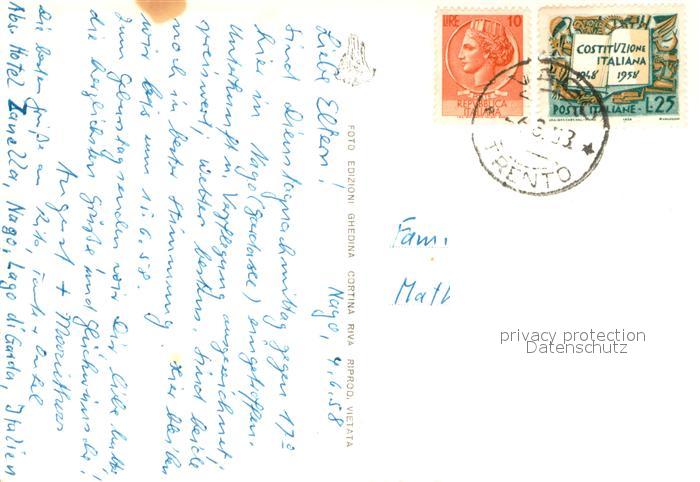 Nago, 4.6.58
Liebe Eltern!
Sind Dienstagnachmittag gegen 17⁰⁰
hier in Nago (Gardasee) eingetroffen.
Unterkunft u. Verpflegung ausgezeichnet,
preiswert, Wetter bestens. Sind beide
noch in bester Stimmung. Hier bleiben
wir bis zum 11.6.58.
Zum Geburtstag senden wir Dir liebe Mutter
die herzlichsten Grüße und Glückwünsche!
August +
Die besten Grüße an Rita, Tante + Onkel
Hotel Zanella, Nago, Lago di Garda, Italien
FOTO EDIZIONI GHEDINA CORTINA RIVA RIPROD. VIETATA
LIRE 10
REPUBBLICA
ITALIANA
COSTITUZIONE
ITALIANA
1948 1958
POSTE ITALIANE - L.25
TRENTO
Fam.
Math
privacy protection
Datenschutz